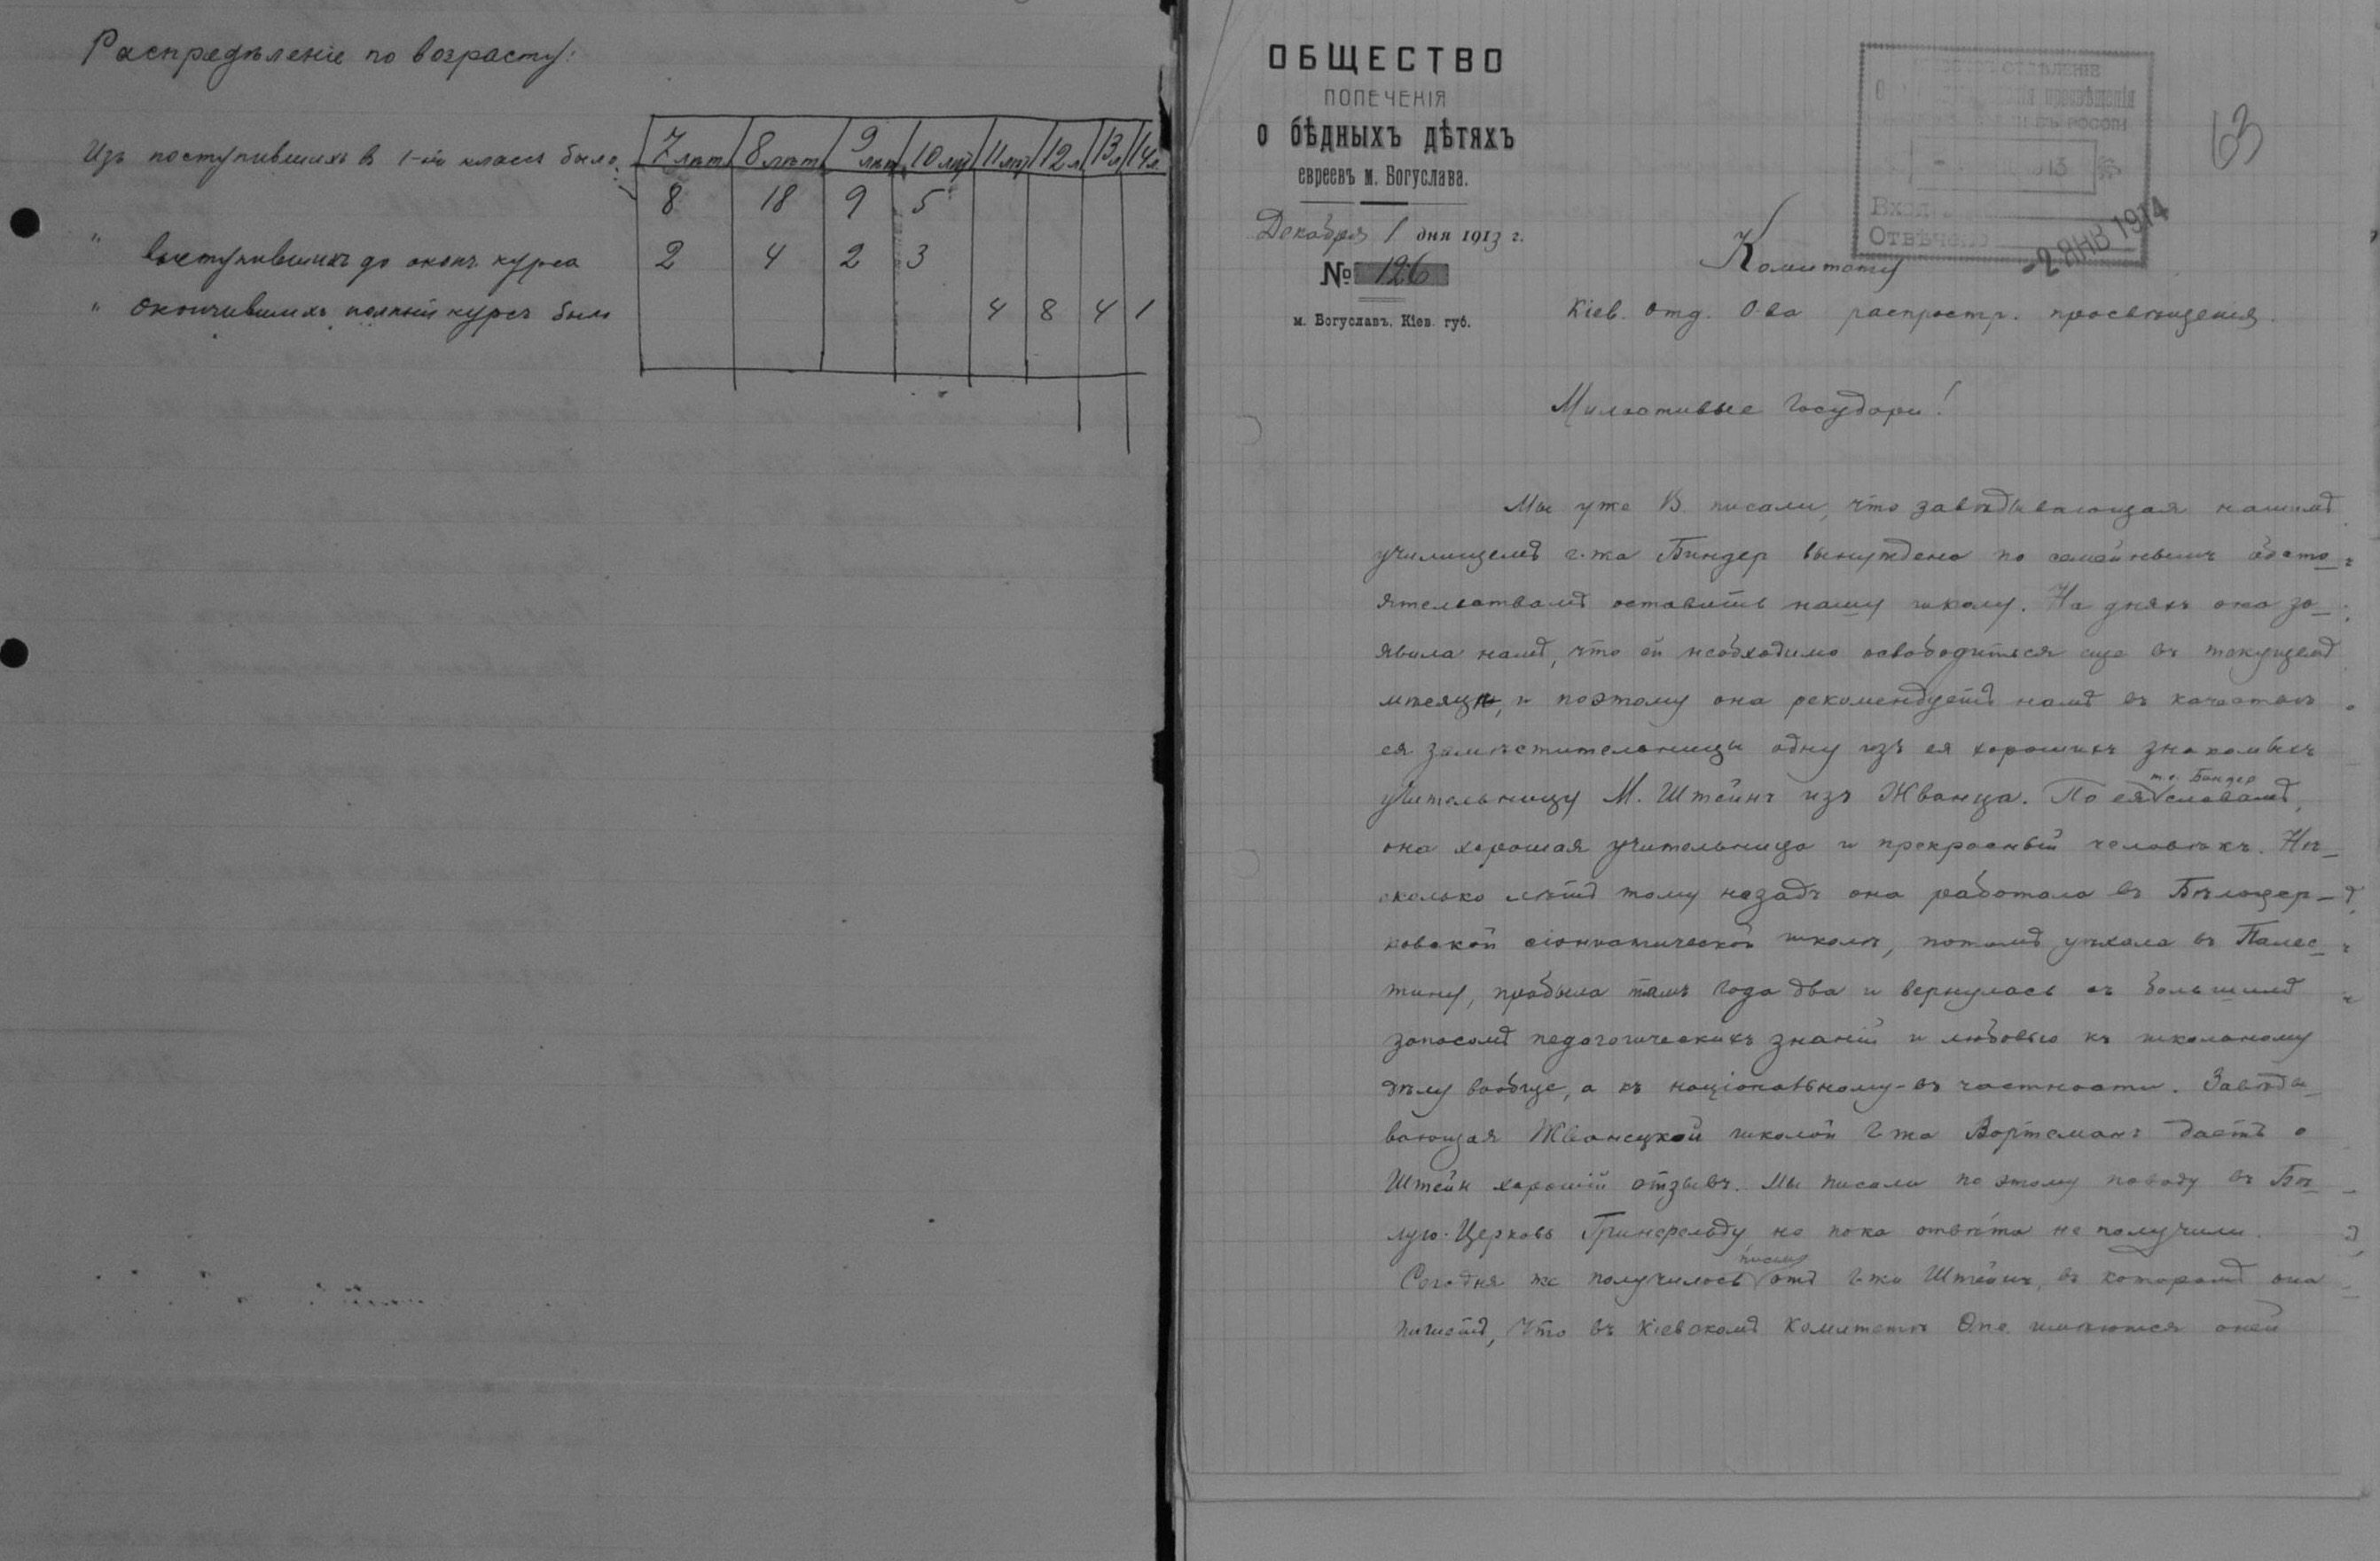 Распредѣленіе по возрасту:
7 лѣт 8 лѣт 9 лѣт 10 лѣт 11 лѣт 12 л 13 л 14 л.
Изъ поступившихъ в 1-ый классъ было
8 18 9 5
" выступившихъ до оконч. курса 2 4 2 3
" окончившихъ полный курсъ было 4 8 4 1
ОБЩЕСТВО
ПОПЕЧЕНІЯ
о бѣдныхъ дѣтяхъ
евреевъ м. Богуслава.
Декабря 1 дня 1913 г.
№ 126
м. Богуславъ, Кіев. губ.
ОТДѢЛЕНІЕ
просвѣщенія
РОССІИ
Вход.
Отвѣчено
-2 ЯНВ 1914
63
Комитету
Кіев. Отд. О-ва распростр. просвѣщенія.
Милостивые Государи!
Мы уже В. писали, что завѣдывающая нашимъ
училищемъ г-жа Биндер вынуждена по семейнымъ обсто-
ятельствамъ оставить нашу школу. На дняхъ она за-
явила намъ, что ей необходимо освободиться еще въ текущемъ
мѣсяцѣ, и поэтому она рекомендуетъ намъ въ качествѣ
ея замѣстительницы одну изъ ея хорошихъ знакомыхъ
учительницу М. Штейнъ изъ Жванца. По ея т.е. Биндер словамъ,
она хорошая учительница и прекрасный человѣкъ. Нѣ-
сколько лѣтъ тому назадъ она работала въ Бѣлоцер-
ковской сіонистической школѣ, потомъ уѣхала въ Палес-
тину, пробыла тамъ года два и вернулась съ большимъ
запасомъ педагогическихъ знаній и любовью къ школьному
дѣлу вообще, а къ національному - въ частности. Завѣды-
вающая Жванецкой школой г-жа Вортсманъ даетъ о
Штейн хорошій отзывъ. Мы писали по этому поводу въ Бѣ-
лую-Церковь Гринфельду, но пока отвѣта не получили.
Сегодня же получилось письмо отъ г-жи Штейнъ, въ которомъ она
пишетъ, что въ Кіевскомъ Комитетѣ Опе. имѣются о ней